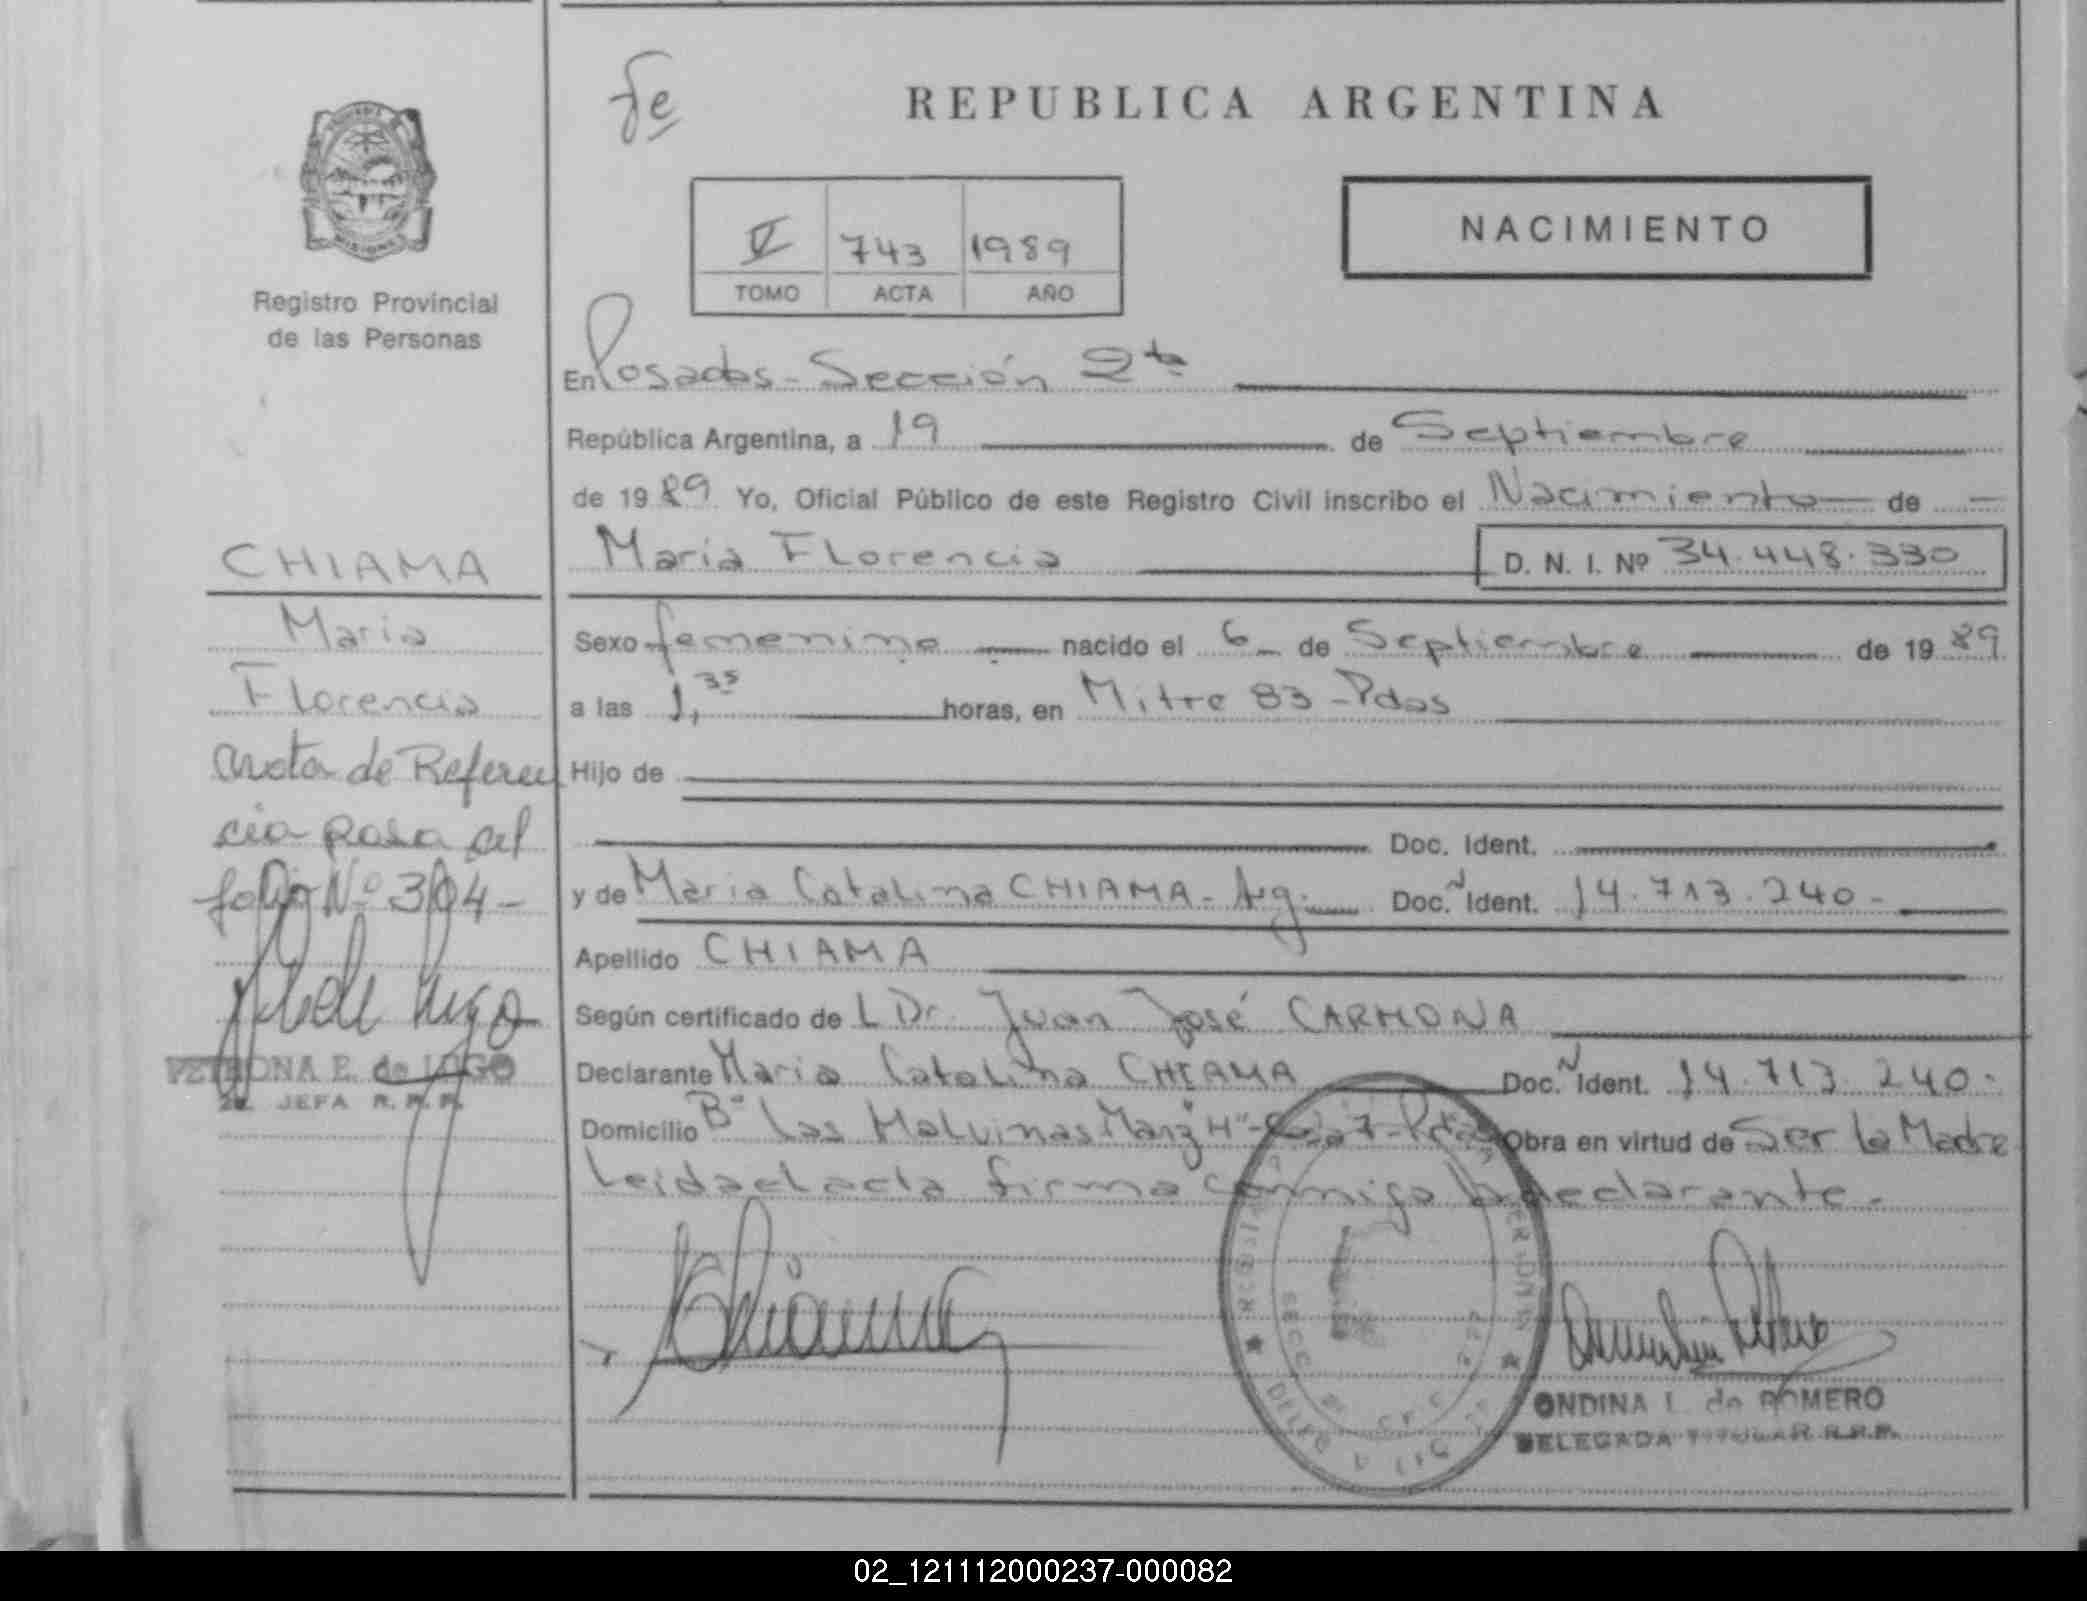 fe
REPUBLICA ARGENTINA
V 743 1989
TOMO ACTA AÑO
NACIMIENTO
MISIONES
Registro Provincial
de las Personas
En Posadas - Sección 2ta
República Argentina, a 19 de Septiembre
de 1989 Yo, Oficial Público de este Registro Civil inscribo el Nacimiento de
María Florencia D. N. I. Nº 34.448.330
CHIAMA
Maria
Florencia
Sexo femenino nacido el 6 de Septiembre de 1989
a las 1,35 horas, en Mitre 83 - Pdas
Hijo de
Doc. Ident.
y de Maria Catalina CHIAMA - Arg. Doc. N Ident. 14.713.240 -
Apellido CHIAMA
Según certificado de L Dr. Juan José CARMONA
Declarante Maria Catalina CHIAMA Doc. N Ident. 14.713.240.
Domicilio Bº Las Malvinas Manz "H" - 7 - Pdas Obra en virtud de Ser la Madre
Leida el acta firma conmigo la declarante.
Nota de Referen
cia pasa al
folio Nº 304 -
PETRONA E. de LUGO
2a. JEFA R. P. P.
Chiama
ONDINA L. de ROMERO
DELEGADA TITULAR R.P.P.
02_121112000237-000082